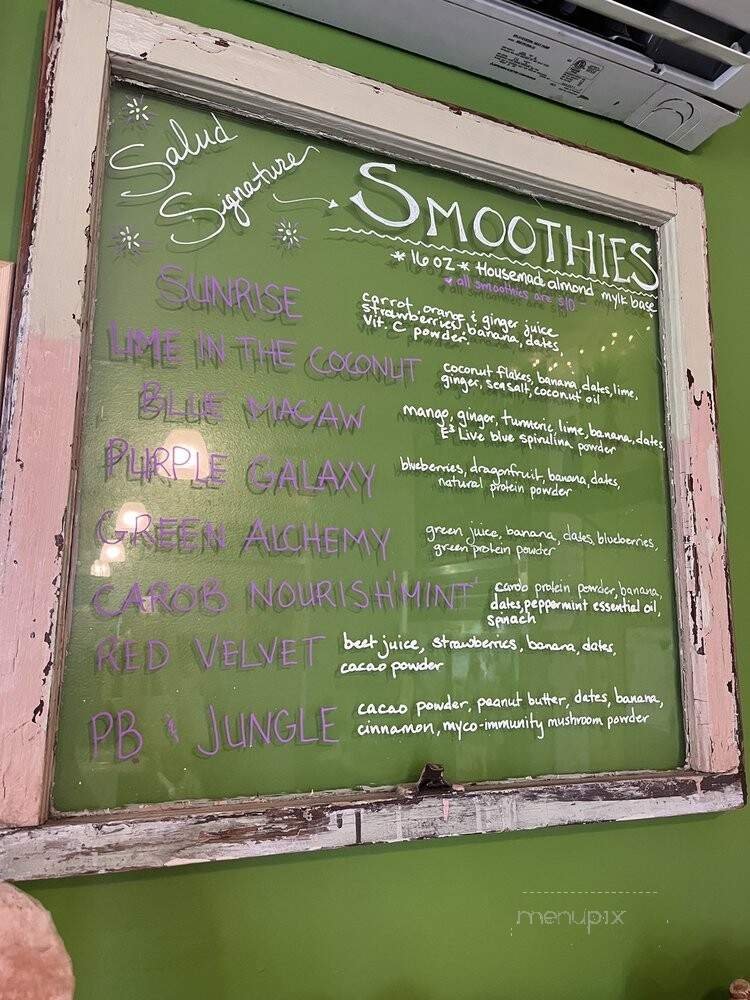 Salud
Signature
SMOOTHIES
* 16 OZ * Housemade almond mylk base
♥ all smoothies are $10
SUNRISE
carrot, orange & ginger juice
strawberries, banana, dates,
vit. C powder
LIME IN THE COCONUT
coconut flakes, banana, dates, lime,
ginger, sea salt, coconut oil
BLUE MACAW
mango, ginger, turmeric, lime, banana, dates,
E3 Live blue spirulina powder
PURPLE GALAXY
blueberries, dragonfruit, banana, dates,
natural protein powder
GREEN ALCHEMY
green juice, banana, dates, blueberries,
green protein powder
CAROB NOURISH'MINT
carob protein powder, banana,
dates, peppermint essential oil,
spinach
RED VELVET
beet juice, strawberries, banana, dates,
cacao powder
PB & JUNGLE
cacao powder, peanut butter, dates, banana,
cinnamon, myco-immunity mushroom powder
menupix